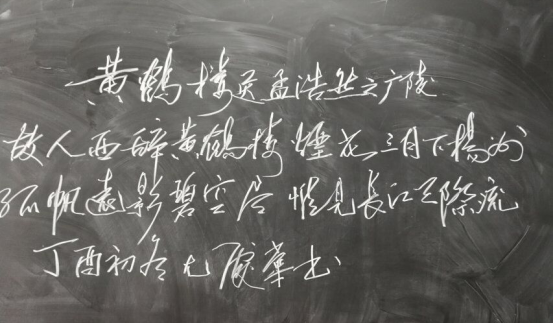 黄鹤楼送孟浩然之广陵
故人西辞黄鹤楼 烟花三月下揚州
孤帆遠影碧空尽 惟見長江天際流
丁酉初冬 華书